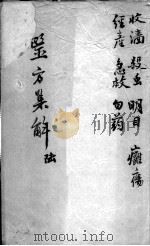 收濇 殺虫 明目 癰瘍
經產 急救 勿药
醫方集解
陆